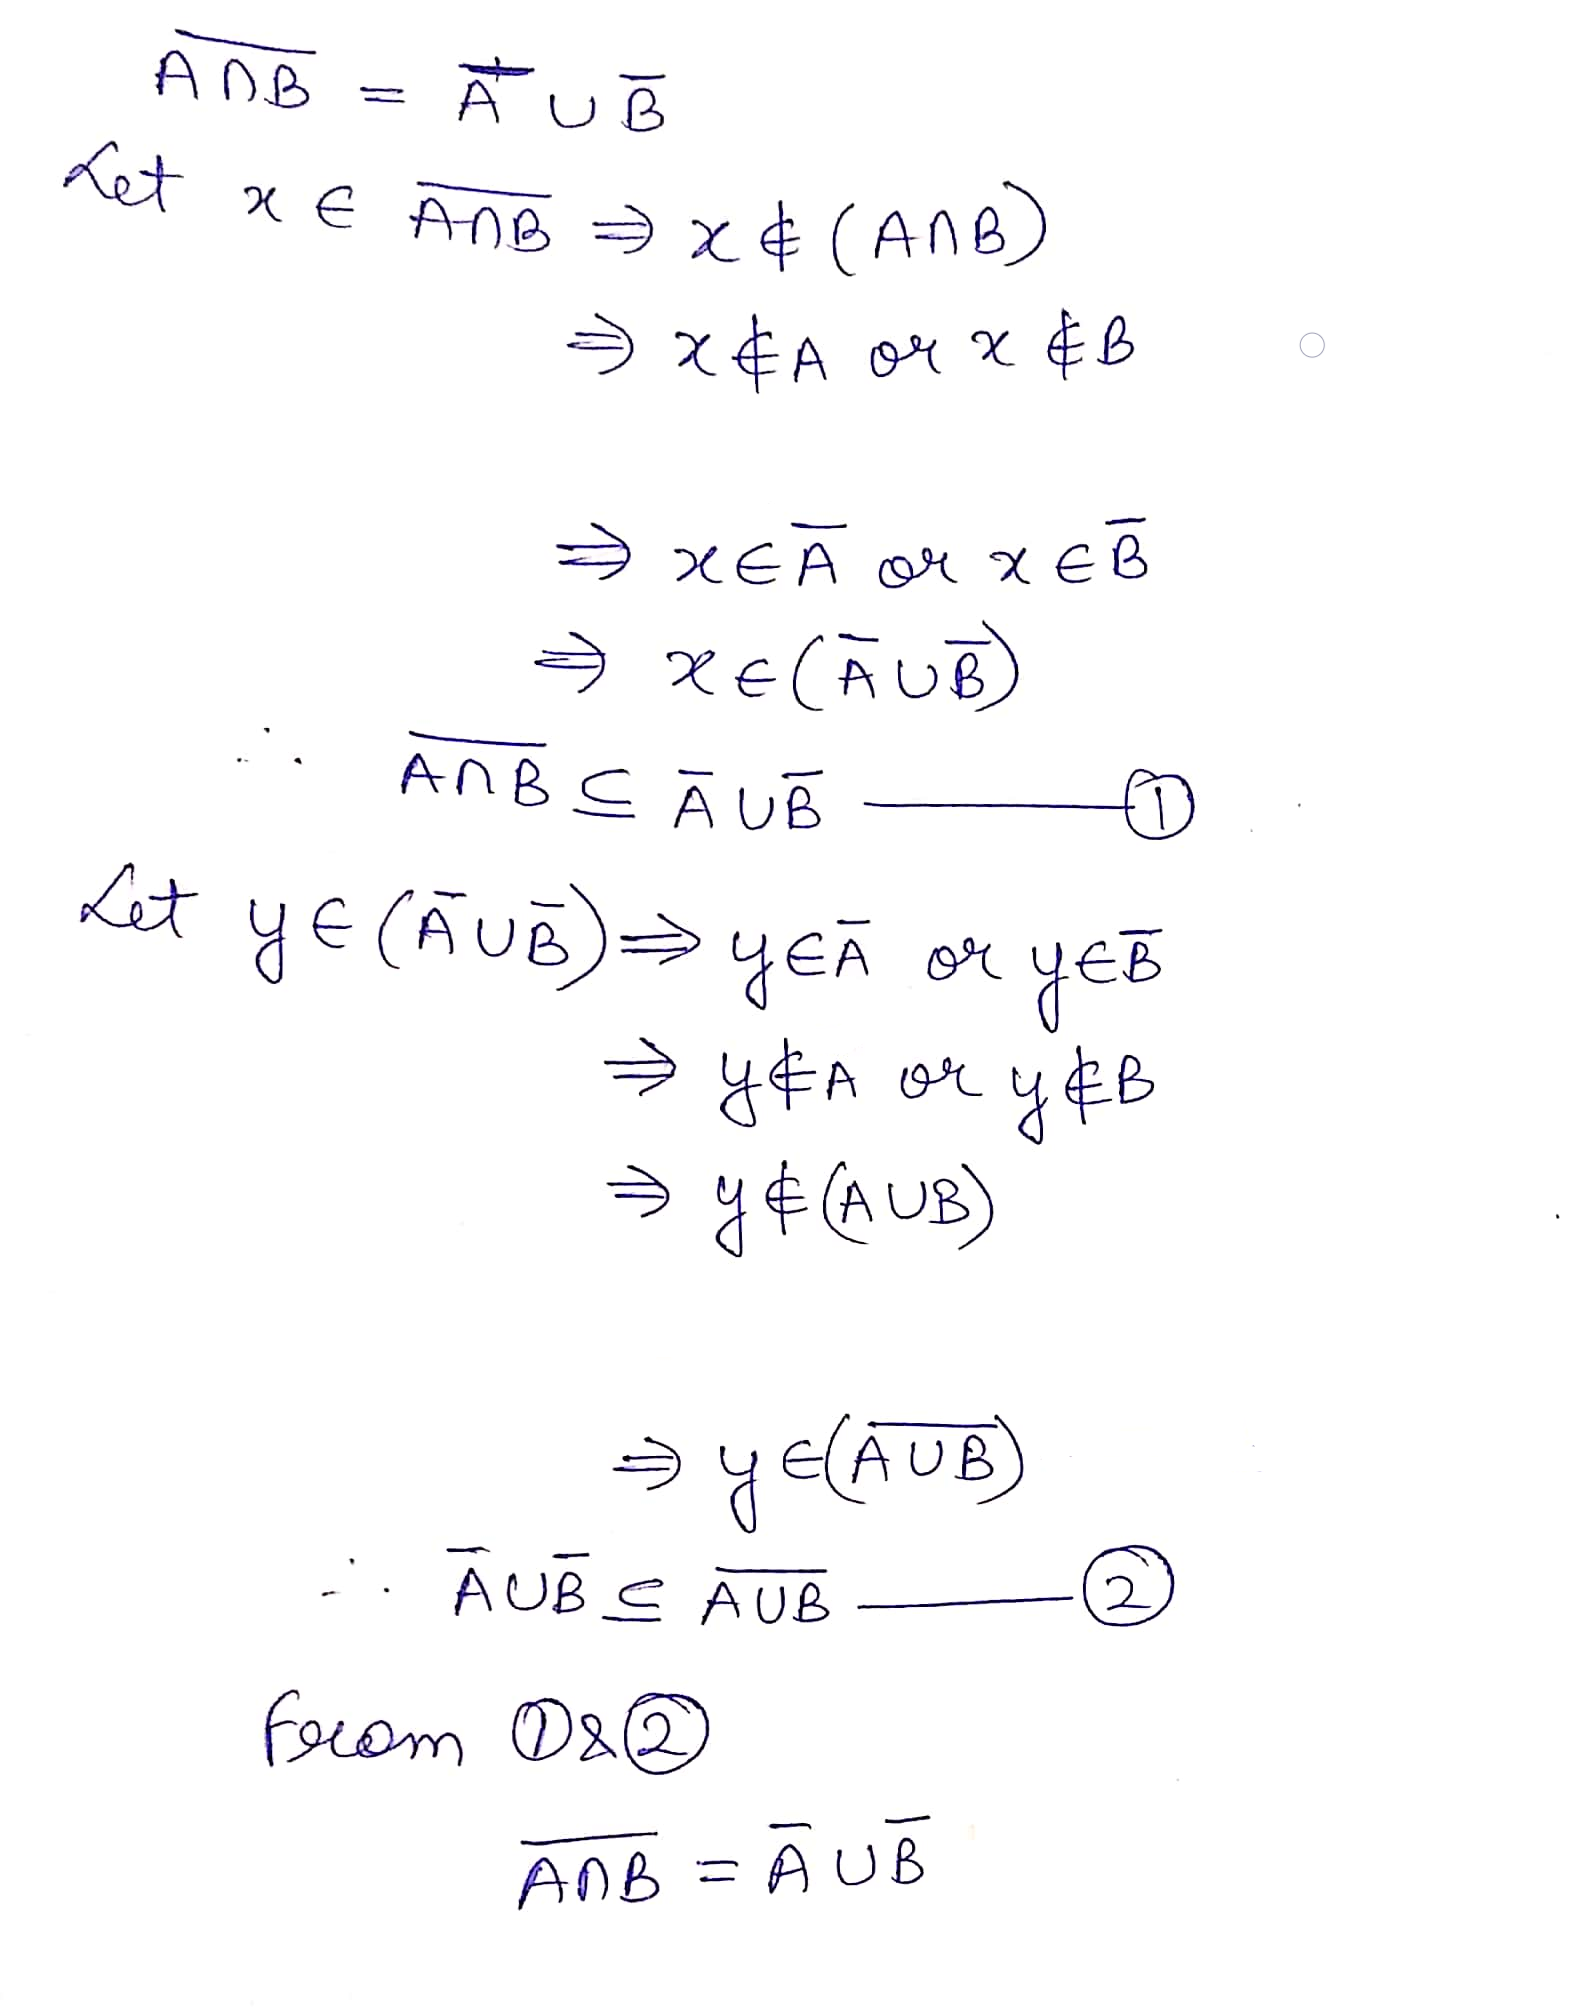 A̅∩̅B̅ = A̅ ∪ B̅
Let x ∈ A̅∩̅B̅ ⇒ x ∉ (A∩B)
⇒ x ∉ A or x ∉ B
⇒ x ∈ A̅ or x ∈ B̅
⇒ x ∈ (A̅ ∪ B̅)
∴ A̅∩̅B̅ ⊆ A̅ ∪ B̅ — ①
Let y ∈ (A̅ ∪ B̅) ⇒ y ∈ A̅ or y ∈ B̅
⇒ y ∉ A or y ∉ B
⇒ y ∉ (A ∪ B)
⇒ y ∈ (A̅∪̅B̅)
∴ A̅ ∪ B̅ ⊆ A̅∪̅B̅ — ②
From ① & ②
A̅∩̅B̅ = A̅ ∪ B̅